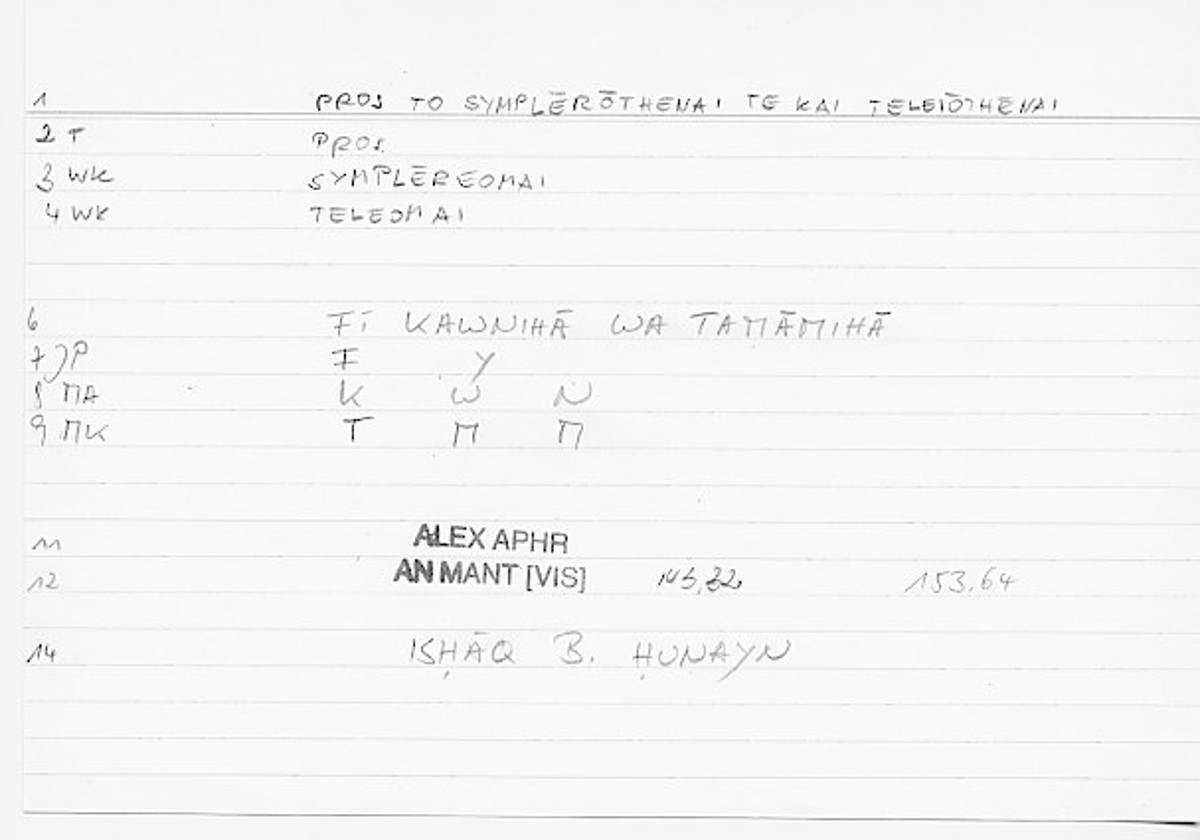 1 PROS TO SYMPLĒRŌTHENAI TE KAI TELEIŌTHĒNAI
2 T PROS
3 WK SYMPLĒREOMAI
4 WK TELEOMAI
6 FĪ KAWNIHĀ WA TAMĀMIHĀ
7 JP F Y
8 MA K W N
9 MK T M M
11 ALEX APHR
12 AN MANT [VIS] 153.64
14 ISḤĀQ B. ḤUNAYN